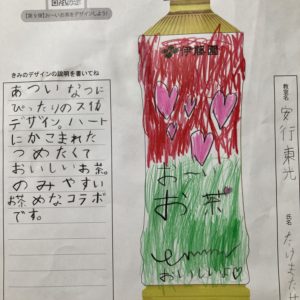 【第9弾】お〜いお茶をデザインしよう!
きみのデザインの説明を書いてね
あつい なつに
ぴったりのスイカ
デザイン。ハート
にかこまれた
つめたくて
おいしいお茶。
のみやすい
お茶めなコラボ
です。
伊藤園
お〜い
お茶
おいしいよ
教室名
安行東光
氏名